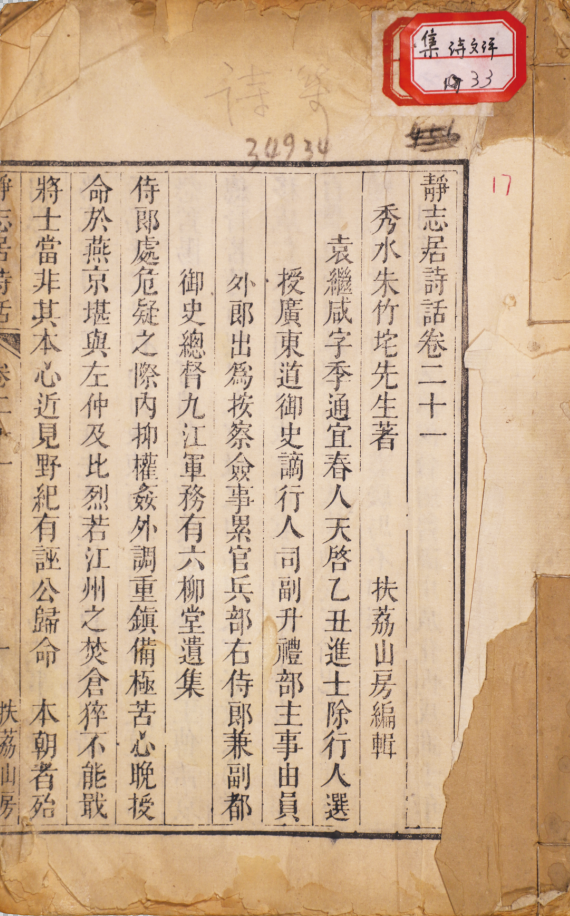 集 诗文评
33
34934
456
17
靜志居詩話卷二十一
秀水朱竹垞先生著 扶荔山房編輯
袁繼咸字季通宜春人天啓乙丑進士除行人選
授廣東道御史謫行人司副升禮部主事由員
外郎出爲按察僉事累官兵部右侍郎兼副都
御史總督九江軍務有六柳堂遺集
侍郎處危疑之際內抑權姦外調重鎮備極苦心晚授
命於燕京堪與左仲及比烈若江州之焚倉猝不能戢
將士當非其本心近見野紀有誣公歸命 本朝者殆
靜志居詩話 卷二十一 一 扶荔山房